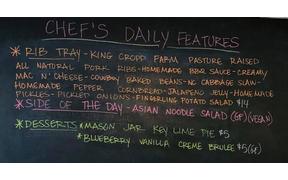 CHEF'S DAILY FEATURES
* RIB TRAY - KING CROPP FARM PASTURE RAISED
ALL NATURAL PORK RIBS - HOMEMADE BBQ SAUCE - CREAMY
MAC N' CHEESE - COWBOY BAKED BEANS - NC CABBAGE SLAW -
HOMEMADE PEPPER CORNBREAD - JALAPENO JELLY - HOMEMADE
PICKLES - PICKLED ONIONS - FINGERLING POTATO SALAD $14
* SIDE OF THE DAY - ASIAN NOODLE SALAD (GF)(VEGAN)
* DESSERTS * MASON JAR KEY LIME PIE $5
* BLUEBERRY VANILLA CREME BRULEE $5 (GF)